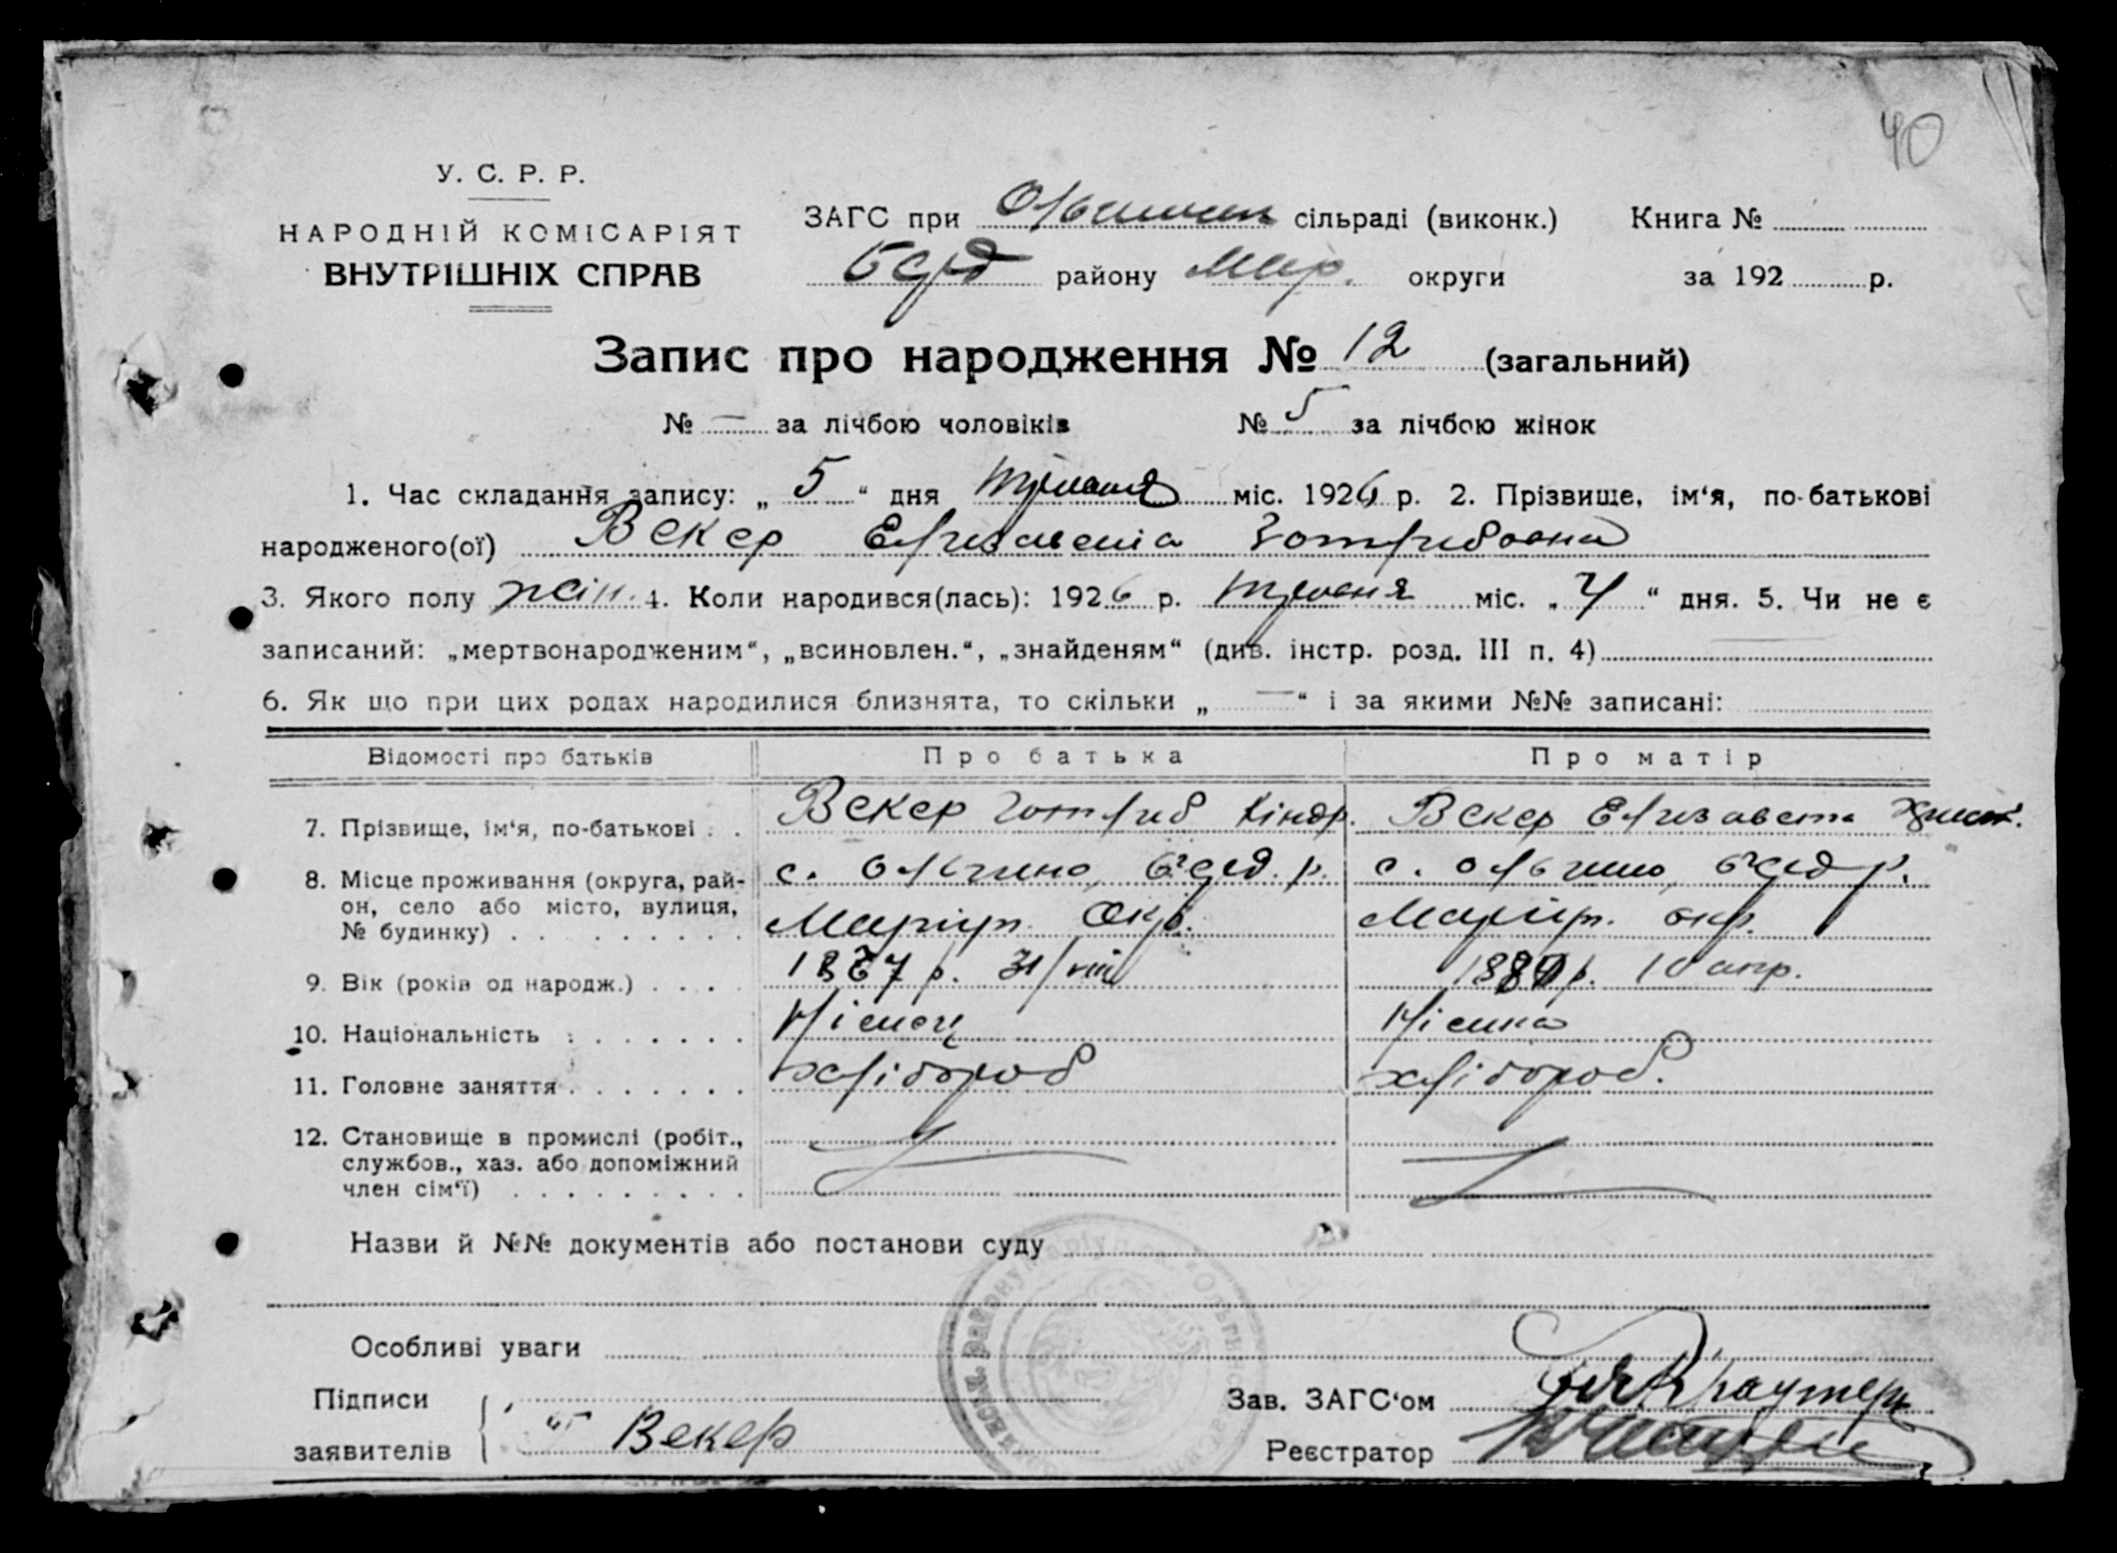 40
У. С. Р. Р.
НАРОДНІЙ КОМІСАРІЯТ
ВНУТРІШНІХ СПРАВ
ЗАГС при сільраді (виконк.) Книга №
району Мар. округи за 192 р.
Запис про народження № 12 (загальний)
№ — за лічбою чоловіків № 5 за лічбою жінок
1. Час складання запису: „ 5 “ дня травня міс. 1926 р. 2. Прізвище, ім‘я, по-батькові
народженого(ої) Векер Елизавета Готлибовна
3. Якого полу жін. 4. Коли народився(лась): 1926 р. травня міс. „ 4 “ дня. 5. Чи не є
записаний: „мертвонародженим“, „всиновлен.“, „знайденям“ (див. інстр. розд. III п. 4) —
6. Як що при цих родах народилися близнята, то скільки „ — “ і за якими №№ записані:
Відомості про батьків Про батька Про матір
7. Прізвище, ім‘я, по-батькові . . Векер Готлиб Кіндр. Векер Елизавета
8. Місце проживання (округа, рай- с. Ольгино, р. с. Ольгино, р.
он, село або місто, вулиця, Маріуп. Окр. Маріуп. окр.
№ будинку) . . . . . . . .
9. Вік (років од народж.) . . . . р. 31/VIII р. 10 апр.
10. Національність . . . . . . . Німець Німка
11. Головне заняття . . . . . . . хлібороб хлібороб.
12. Становище в промислі (робіт.,
службов., хаз. або допоміжний
член сім‘ї) . . . . . . . . .
Назви й №№ документів або постанови суду
Особливі уваги
Підписи
заявителів Векер
Зав. ЗАГС‘ом
Реєстратор